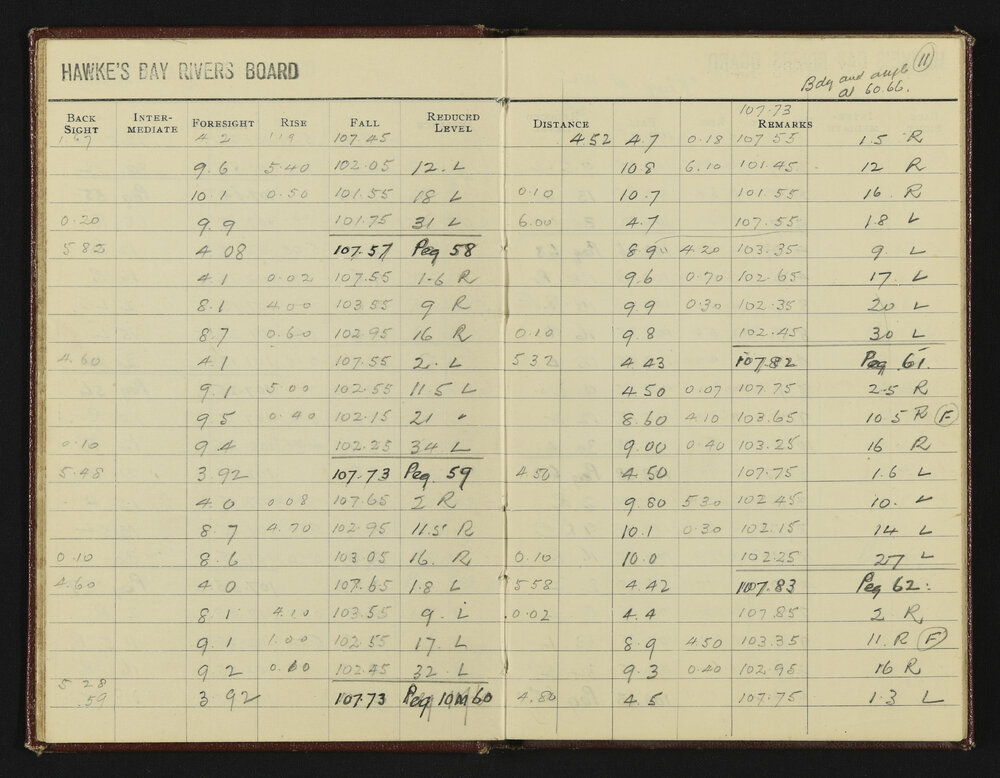 HAWKE'S BAY RIVERS BOARD
Bdy and angle (11)
at 60.66.
BACK SIGHT INTER-MEDIATE FORESIGHT RISE FALL REDUCED LEVEL
1.57 4.2 1.19 107.45
9.6 5.40 102.05 12. L
10.1 0.50 101.55 18 L
0.20 9.9 101.75 31 L
5.82 4.08 107.57 Peg 58
4.1 0.02 107.55 1.6 R
8.1 4.00 103.55 9 R
8.7 0.60 102.95 16 R
4.60 4.1 107.55 2. L
9.1 5.00 102.55 11.5 L
9.5 0.40 102.15 21 "
0.10 9.4 102.25 34 L
5.48 3.92 107.73 Peg. 59
4.0 0.08 107.65 2 R
8.7 4.70 102.95 11.5 R
0.10 8.6 103.05 16. R
4.60 4.0 107.65 1.8 L
8.1 4.10 103.55 9. L
9.1 1.00 102.55 17. L
9.2 102.45 32. L
5.28
.59 3.92 107.73 Peg 10M60
DISTANCE REMARKS
107.73
4.52 4.7 0.18 107.55 1.5 R
10.8 6.10 101.45 12 R
0.10 10.7 101.55 16. R
6.00 4.7 107.55 1.8 L
8.9 4.20 103.35 9. L
9.6 0.70 102.65 17. L
9.9 0.30 102.35 20 L
0.10 9.8 102.45 30 L
5.37 4.43 107.82 Peg 61.
4.50 0.07 107.75 2.5 R
8.60 4.10 103.65 10.5 R (F)
9.00 0.40 103.25 16 R
4.50 4.50 107.75 1.6 L
9.80 5.30 102.45 10. L
10.1 0.30 102.15 14 L
0.10 10.0 102.25 27 L
5.58 4.42 107.83 Peg 62:
0.02 4.4 107.85 2 R
8.9 4.50 103.35 11. R (F)
9.3 0.40 102.95 16 R
4.80 4.5 107.75 1.3 L